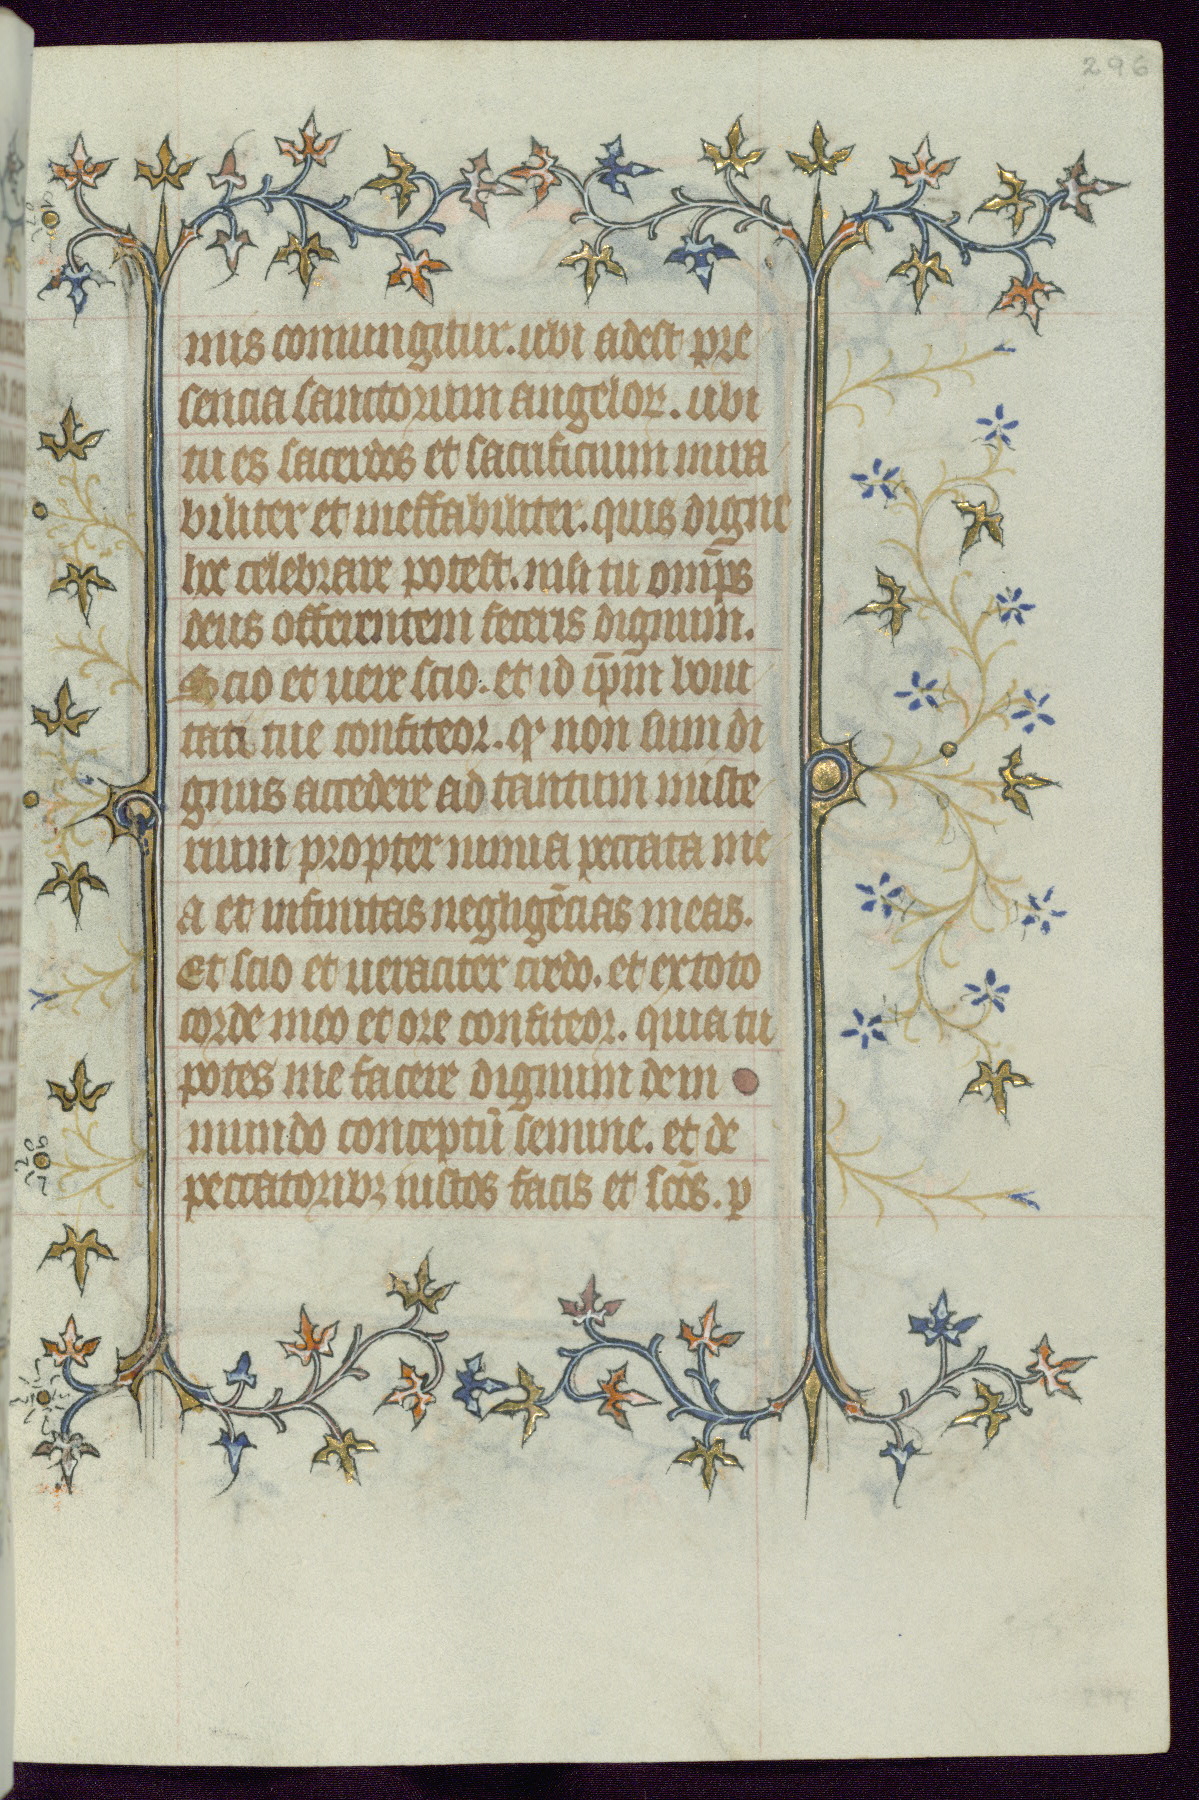 296
mis coniungitur. ubi adest pre
sencia sanctorum angeloꝝ. ubi
tu es sacerdos et sacrificium mira
biliter et ineffabiliter. quis digne
hec celebrare potest. nisi tu omīps
deus offerentem feceris dignum.
Scio et uere scio. et id ip̄m boni
tati tue confiteor. qꝛ non sum di
gnus accedere ad tantum miste
rium propter nimia peccata me
a et infinitas negligēcias meas.
Et scio et ueraciter credo. et ex toto
corde meo et ore confiteor. quia tu
potes me facere dignum de in
mundo conceptū semine. et de
peccatoribꝫ iustos facis et sc̄os. p